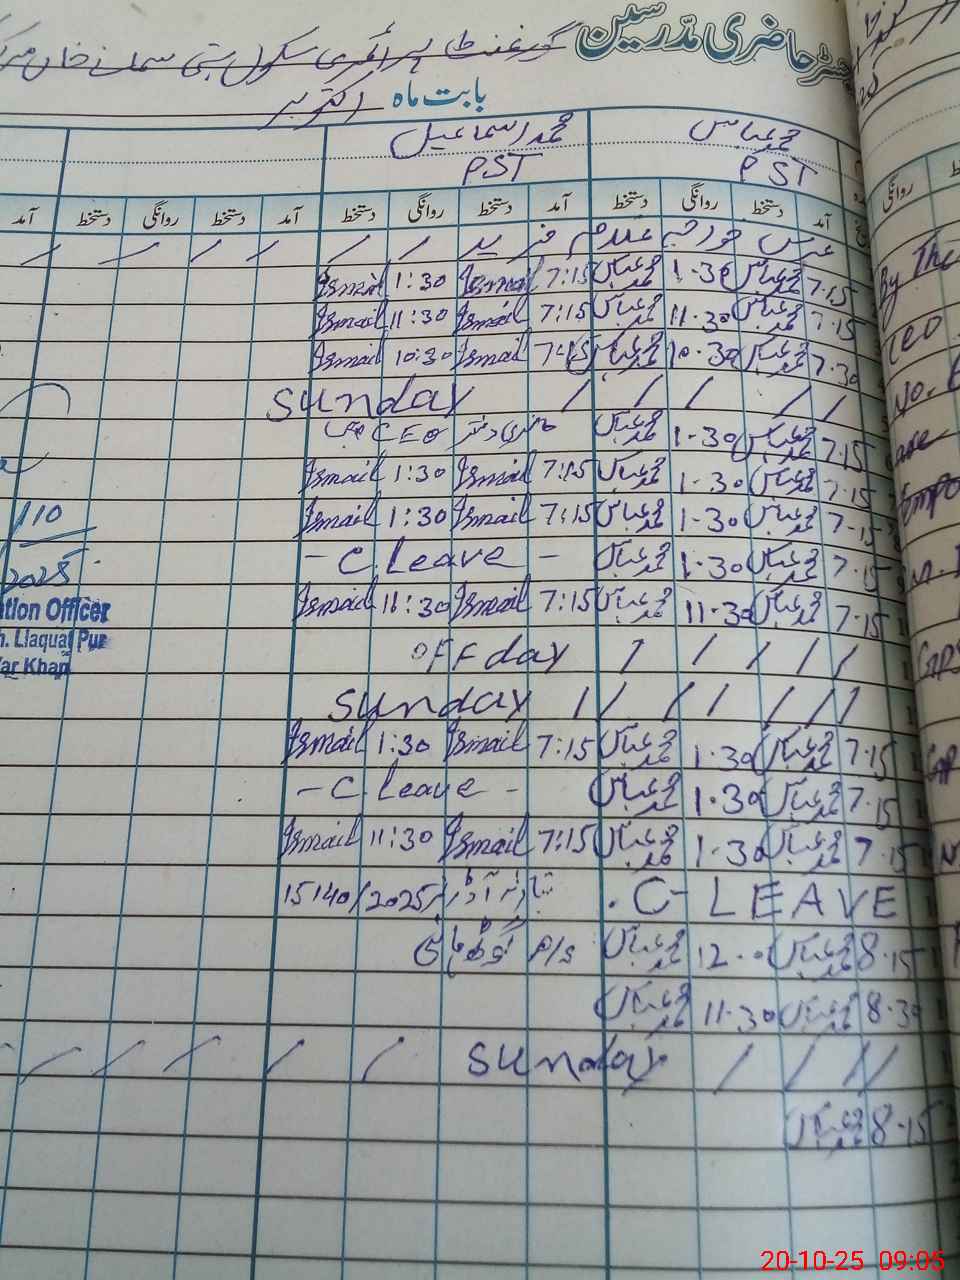 رجسٹر حاضری مدرسین گورنمنٹ پرائمری سکول بستی
بابت ماہ اکتوبر
محمد عباس محمد اسماعیل
PST PST
آمد دستخط روانگی دستخط آمد دستخط روانگی دستخط آمد دستخط روانگی دستخط آمد
عرس خواجہ غلام فرید / / / / / / /
7:15 محمد عباس 1:30 محمد عباس 7:15 Ismail 1:30 Ismail
7:15 محمد عباس 11:30 محمد عباس 7:15 Ismail 11:30 Ismail
7:30 محمد عباس 10:30 محمد عباس 7:15 Ismail 10:30 Ismail
/ / / / / Sunday
7:15 محمد عباس 1:30 محمد عباس حاضری دفتر CEO
7:15 محمد عباس 1:30 محمد عباس 7:15 Ismail 1:30 Ismail
7:15 محمد عباس 1:30 محمد عباس 7:15 Ismail 1:30 Ismail
7:15 محمد عباس 1:30 محمد عباس - C. Leave -
7:15 محمد عباس 11:30 محمد عباس 7:15 Ismail 11:30 Ismail
/ / / / / OFF day
/ / / / / / / Sunday
7:15 محمد عباس 1:30 محمد عباس 7:15 Ismail 1:30 Ismail
7:15 محمد عباس 1:30 محمد عباس - C. Leave -
7:15 محمد عباس 1:30 محمد عباس 7:15 Ismail 11:30 Ismail
C- LEAVE
15140/2025
8:15 محمد عباس 12:00 محمد عباس P/S
8:30 محمد عباس 11:30 محمد عباس
/ / / / Sunday / / / / /
8:15 محمد عباس
/10
2025
tion Officer
Liaquat Pur
Yar Khan
روانگی
By The
CEO
No.
20-10-25 09:05